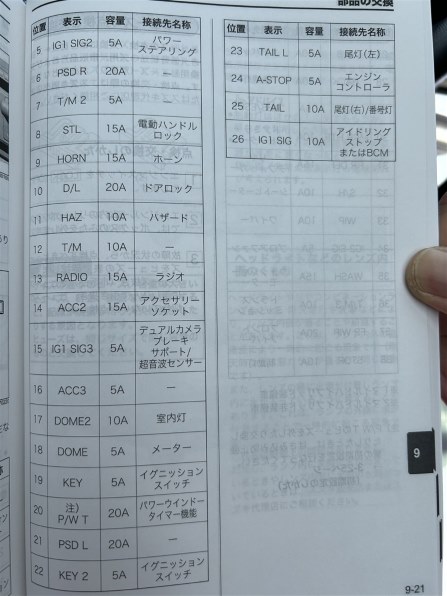 部品の交換
位置 表示 容量 接続先名称
5 IG1 SIG2 5A パワー
ステアリング
6 PSD R 20A ―
7 T/M 2 5A ―
8 STL 15A 電動ハンドル
ロック
9 HORN 15A ホーン
10 D/L 20A ドアロック
11 HAZ 10A ハザード
12 T/M 10A ―
13 RADIO 15A ラジオ
14 ACC2 15A アクセサリー
ソケット
15 IG1 SIG3 5A デュアルカメラ
ブレーキ
サポート/
超音波センサー
16 ACC3 5A ―
17 DOME2 10A 室内灯
18 DOME 5A メーター
19 KEY 5A イグニッション
スイッチ
20 注)
P/W T 20A パワーウインドー
タイマー機能
21 PSD L 20A ―
22 KEY 2 5A イグニッション
スイッチ
位置 表示 容量 接続先名称
23 TAIL L 5A 尾灯(左)
24 A-STOP 5A エンジン
コントローラ
25 TAIL 10A 尾灯(右)/番号灯
26 IG1 SIG 10A アイドリング
ストップ
またはBCM
9
9-21